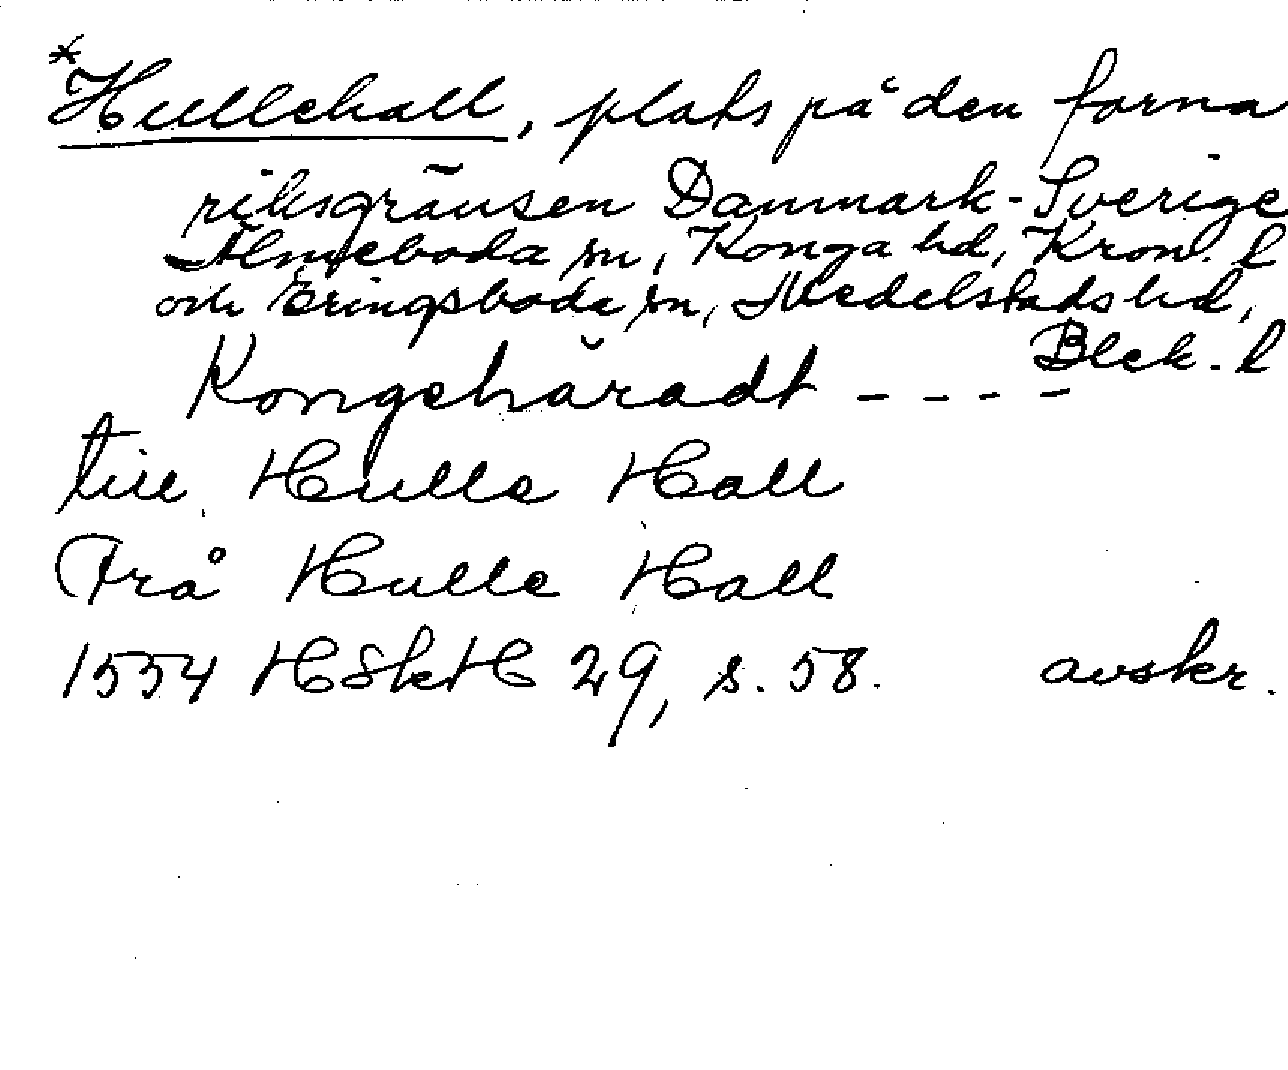 *Hullehall, plats på den forna
riksgränsen Danmark-Sverige
Älmeboda sn, Konga hd, Kron. l
och Eringsboda sn, Medelstads hd,
Blek. l
Kongehäradt - - - -
till Hulle Hall
Frå Hulle Hall
1554 HSkH 29, s. 58. avskr.